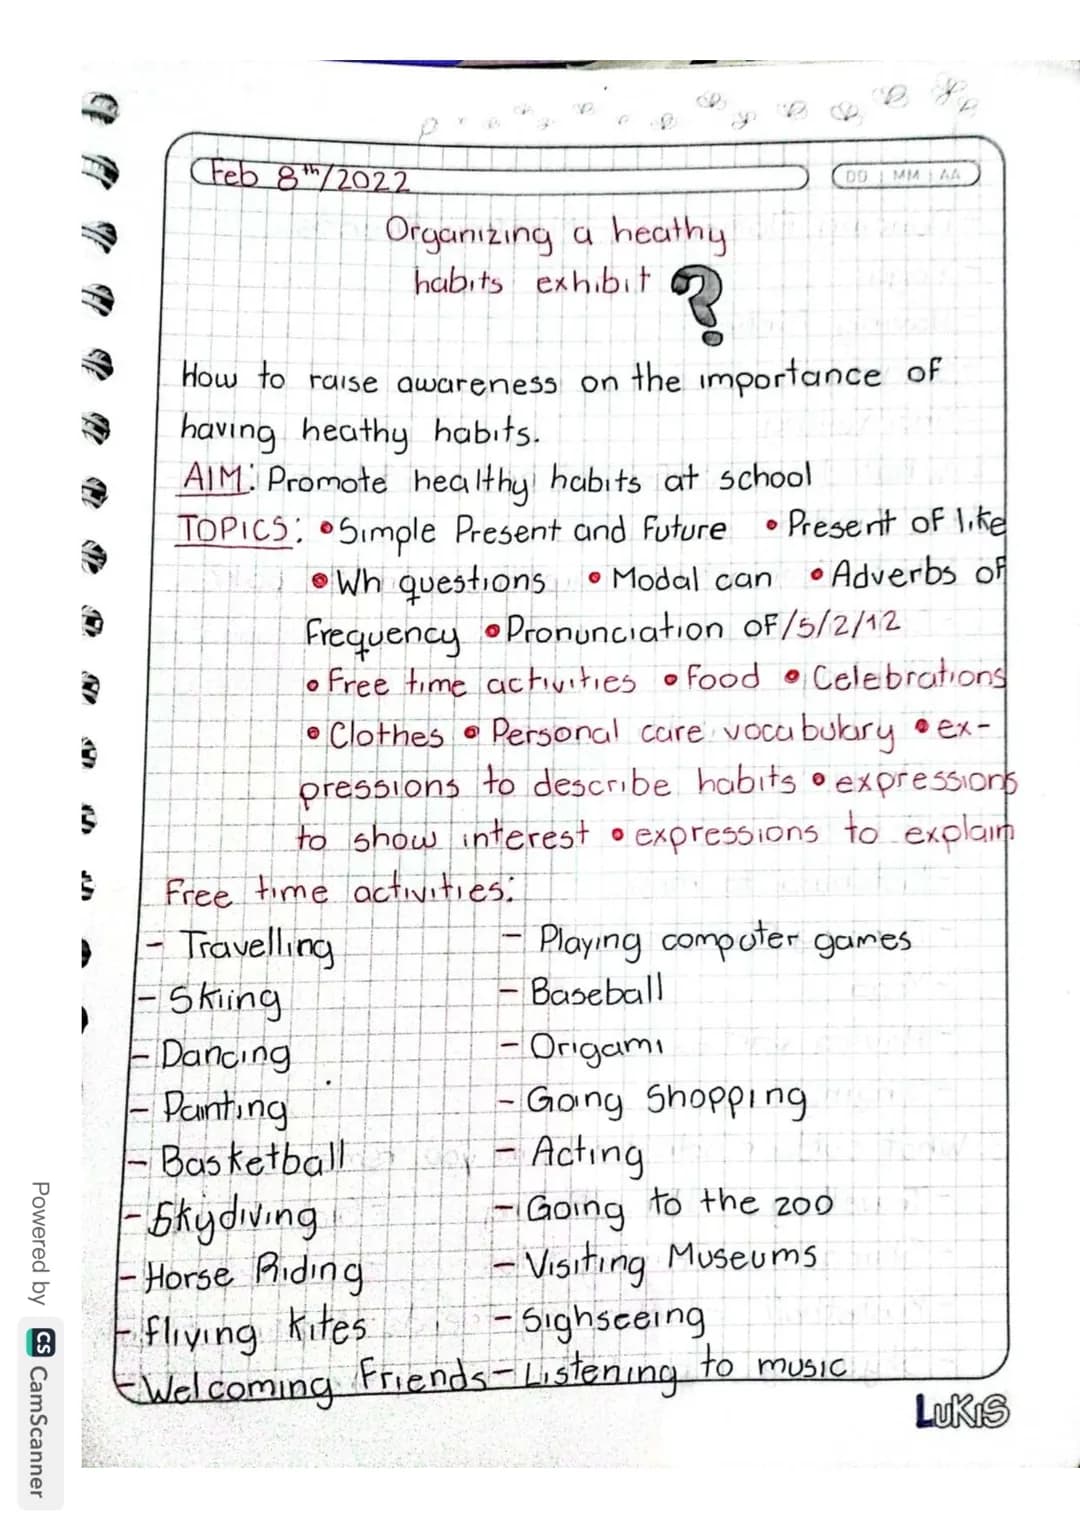 Feb 8th/2022
DD | MM | AA
Organizing a heathy
habits exhibit ?
How to raise awareness on the importance of
having heathy habits.
AIM: Promote healthy habits at school
TOPICS: • Simple Present and Future • Present of like
• Wh questions • Modal can • Adverbs of
Frequency • Pronunciation of /5/2/12
• Free time activities • Food • Celebrations
• Clothes • Personal care vocabulary • ex-
pressions to describe habits • expressions
to show interest • expressions to explain
Free time activities:
- Travelling - Playing computer games
- Skiing - Baseball
- Dancing - Origami
- Painting - Going Shopping
- Basketball - Acting
- Skydiving - Going to the zoo
- Horse Riding - Visiting Museums
- fliying kites - Sighseeing
- Welcoming Friends - Listening to music
LUKIS
Powered by CS CamScanner